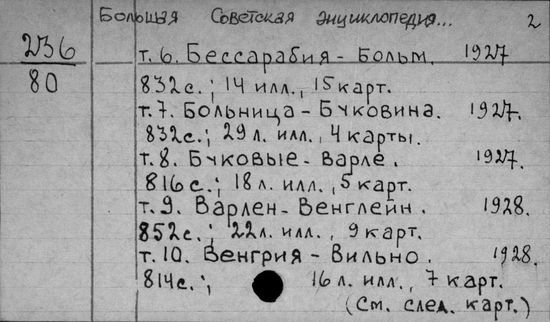 Большая Советская энциклопедия... 2
236 т. 6. Бессарабия - Больм. 1927
80 832с.; 14 илл., 15 карт.
т. 7. Больница - Буковина. 1927.
832с.; 29 л. илл., 4 карты.
т. 8. Буковые - Варле. 1927.
816 с.; 18 л. илл., 5 карт.
т. 9. Варлен - Венглейн. 1928.
852с.; 22л. илл., 9 карт.
т. 10. Венгрия - Вильно. 1928.
814с.; 16 л. илл., 7 карт.
(См. след. карт.)